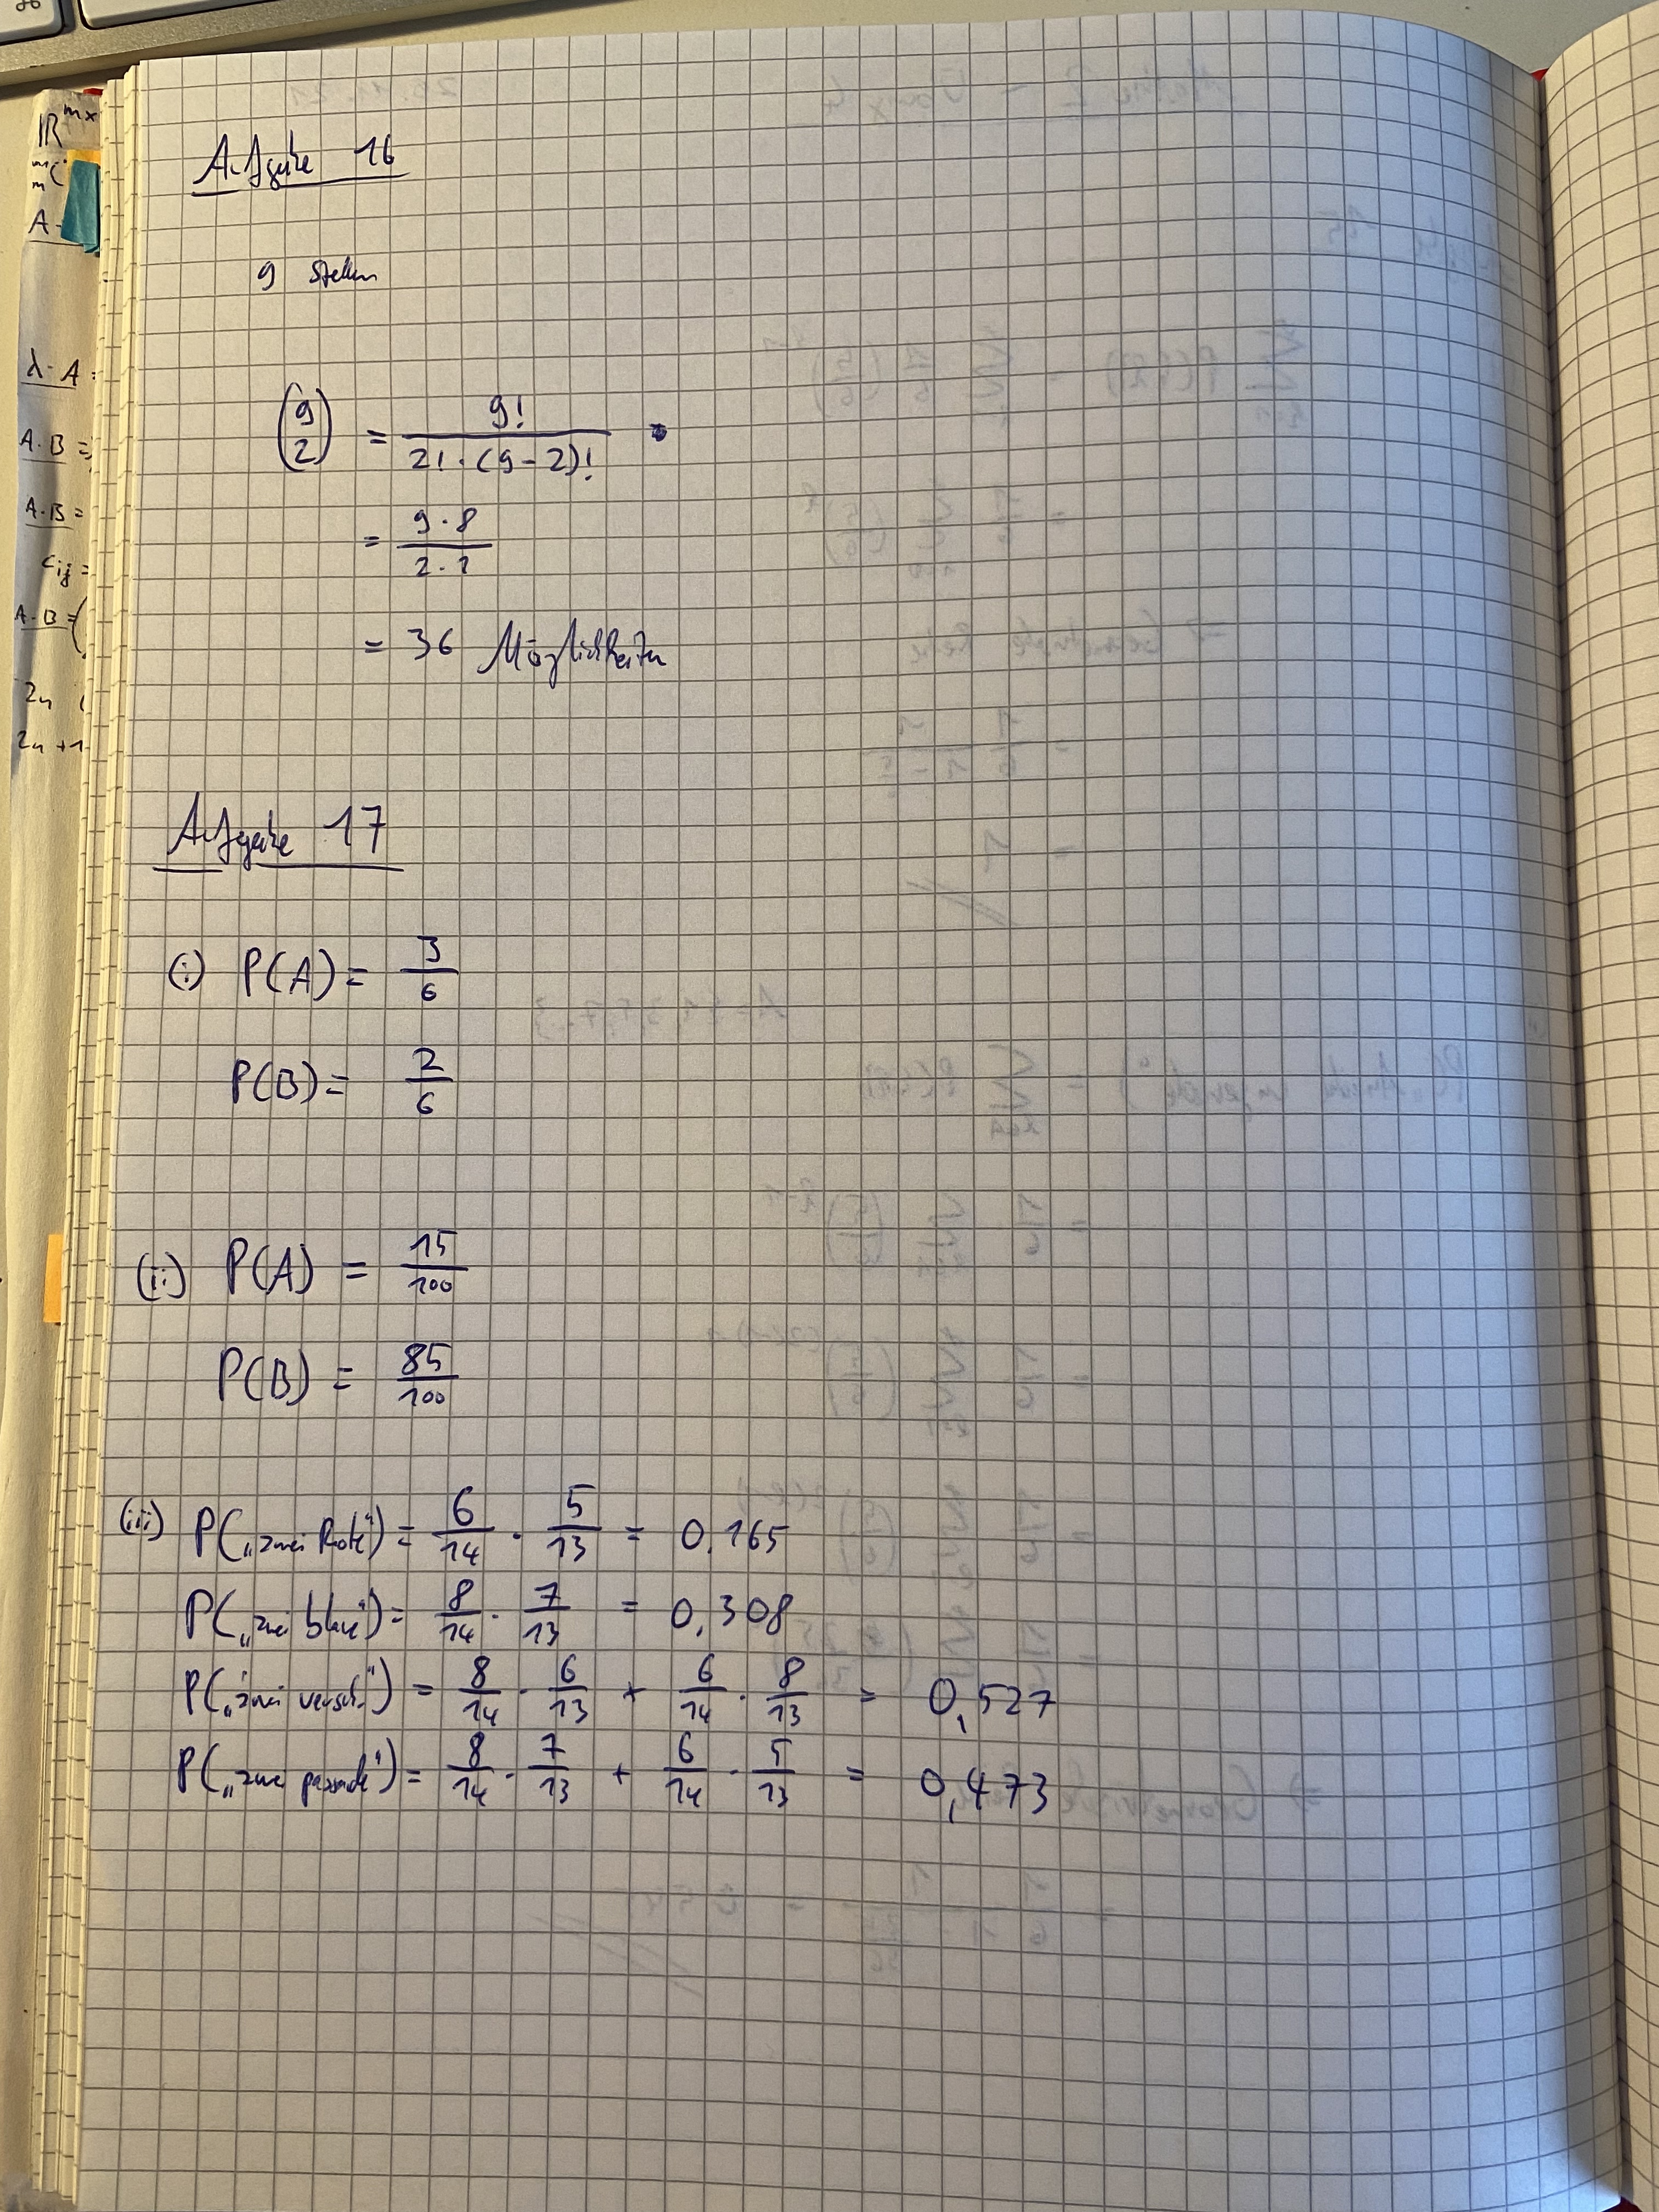 Aufgabe 16
9 stellen
(9 2) = 9! / 2! · (9-2)!
= 9 · 8 / 2 · 1
= 36 Möglichkeiten
Aufgabe 17
(i) P(A) = 3/6
P(B) = 2/6
(ii) P(A) = 15/100
P(B) = 85/100
(iii) P(„zwei Rote") = 6/14 · 5/13 = 0,165
P(„zwei blaue") = 8/14 · 7/13 = 0,308
P(„zwei versch.") = 8/14 · 6/13 + 6/14 · 8/13 = 0,527
P(„zwei passende") = 8/14 · 7/13 + 6/14 · 5/13 = 0,473
ℝ^mx
A
λ·A =
A·B =
A·B =
c_ij =
A·B = (
2n
2n+1